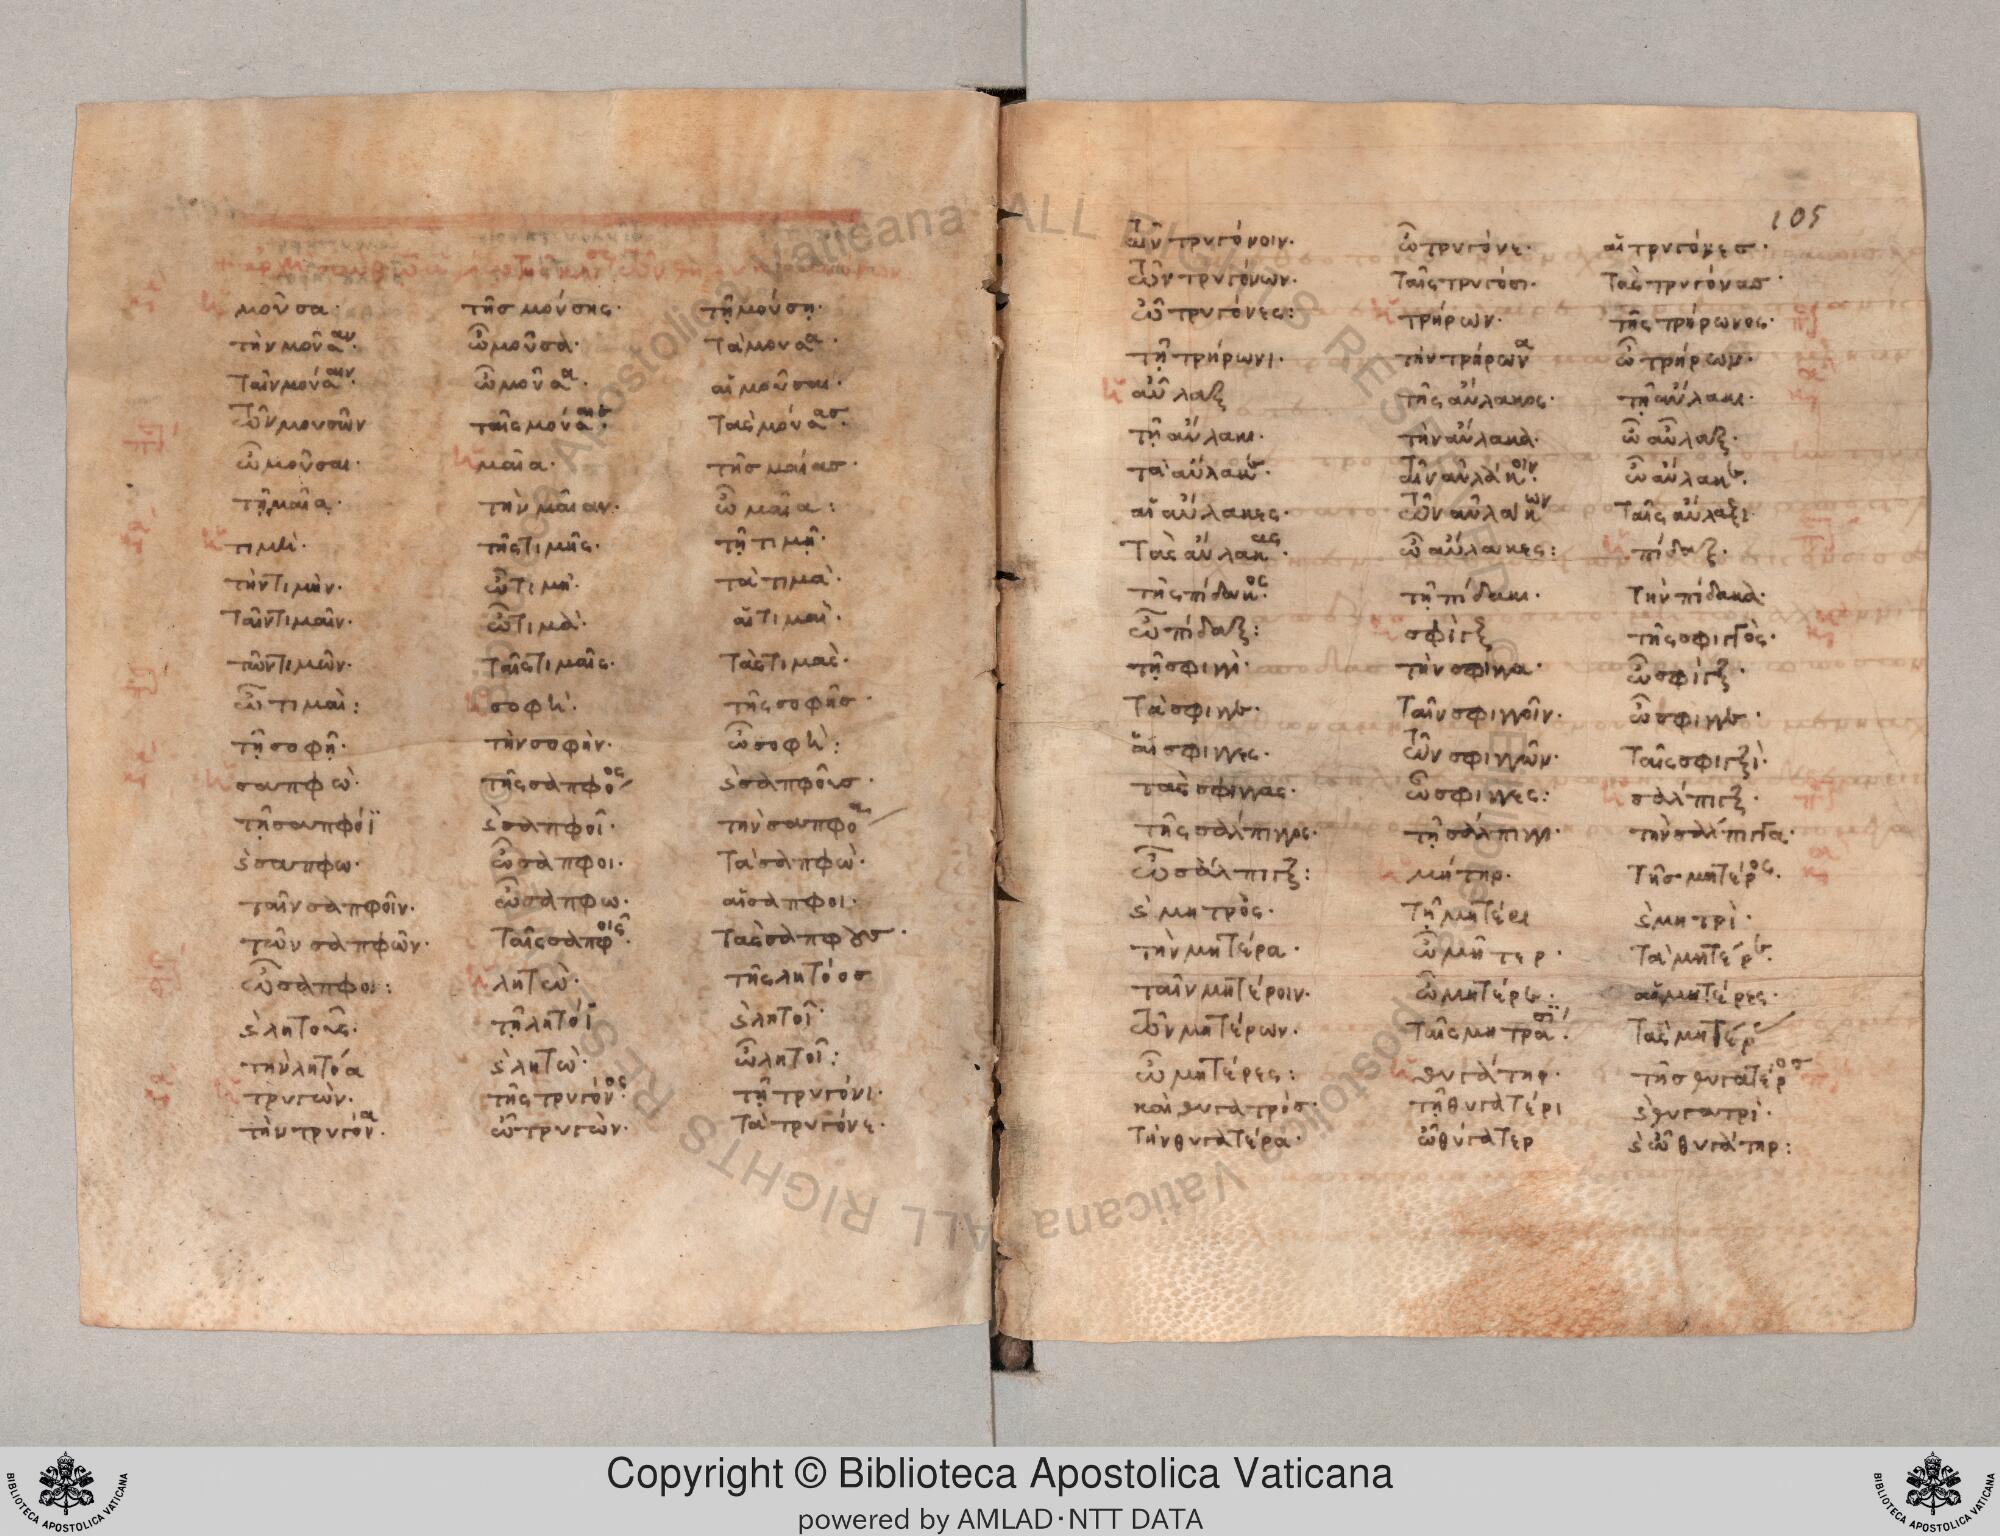 μοῦσα· τῆς μούσης· τῇ μούσῃ·
τὴν μοῦσαν· ὦ μοῦσα· τὰ μούσα·
ταῖν μούσαιν· ὦ μούσα· αἱ μοῦσαι·
τῶν μουσῶν ταῖς μούσαις· τὰς μούσας·
ὦ μοῦσαι· μαῖα· τῆς μαίας·
τῇ μαίᾳ· τὴν μαῖαν· ὦ μαῖα:
τιμὴ· τῆς τιμῆς· τῇ τιμῇ·
τὴν τιμὴν· ὦ τιμὴ· τὰ τιμὰ·
ταῖν τιμαῖν· ὦ τιμὰ· αἱ τιμαὶ·
τῶν τιμῶν· ταῖς τιμαῖς· τὰς τιμὰς·
ὦ τιμαὶ: σοφὴ· τῆς σοφῆς·
τῇ σοφῇ· τὴν σοφὴν· ὦ σοφὴ:
σαπφὼ· τῆς σαπφόος ϗ σαπφοῦς·
τῇ σαπφόϊ ϗ σαπφοῖ· τὴν σαπφόα
ϗ σαπφω· ὦ σαπφοι· τὰ σαπφὼ·
ταῖν σαπφοῖν· ὦ σαπφω· αἱ σαπφοι·
τῶν σαπφῶν· ταῖς σαπφοῖς· τὰς σαπφοὺς·
ὦ σαπφοι: λητὼ· τῆς λητόος
ϗ λητοῦς· τῇ λητόϊ ϗ λητοῖ·
τὴν λητόα ϗ λητὼ· ὦ λητοῖ:
τρυγὼν· τῆς τρυγόνος· τῇ τρυγόνι·
τὴν τρυγόνα· ὦ τρυγὼν· τὰ τρυγόνε·
105
ταῖν τρυγόνοιν· ὦ τρυγόνε· αἱ τρυγόνες·
τῶν τρυγόνων· ταῖς τρυγόσι· τὰς τρυγόνας·
ὦ τρυγόνες: τρήρων· τῆς τρήρωνος·
τῇ τρήρωνι· τὴν τρήρωνα ὦ τρήρων·
αὖλαξ τῆς αὔλακος· τῇ αὔλακι·
τῇ αὔλακι· τὴν αὔλακα· ὦ αὖλαξ·
τὰ αὔλακε· ταῖν αὐλάκοιν· ὦ αὔλακε·
αἱ αὔλακες· τῶν αὐλάκων ταῖς αὔλαξι·
τὰς αὔλακας· ὦ αὔλακες: πίδαξ·
τῆς πίδακος· τῇ πίδακι· τὴν πίδακα·
ὦ πίδαξ: σφὶγξ τῆς σφιγγὸς·
τῇ σφιγγὶ· τὴν σφίγγα· ὦ σφίγξ·
τὰ σφιγγε· ταῖν σφιγγοῖν· ὦ σφιγγε·
αἱ σφιγγες· τῶν σφιγγῶν· ταῖς σφιγξὶ·
τὰς σφίγγας· ὦ σφιγγες: σάλπιγξ·
τῆς σάλπιγγος· τῇ σάλπιγγι· τὴν σάλπιγγα·
ὦ σάλπιγξ: μήτηρ· τῆς μητέρος·
ϗ μητρὸς· τῇ μητέρι ϗ μητρὶ·
τὴν μητέρα· ὦ μῆτερ· τὰ μητέρε·
ταῖν μητέροιν· ὦ μητέρε· αἱ μητέρες·
τῶν μητέρων· ταῖς μητράσϊ· τὰς μητέρας
ὦ μητέρες: θυγάτηρ· τῆς θυγατέρος
καὶ θυγατρὸς· τῇ θυγατέρι ϗ θυγατρὶ·
τὴν θυγατέρα· ὦ θύγατερ ϗ ὦ θυγάτηρ:
Copyright © Biblioteca Apostolica Vaticana
powered by AMLAD·NTT DATA